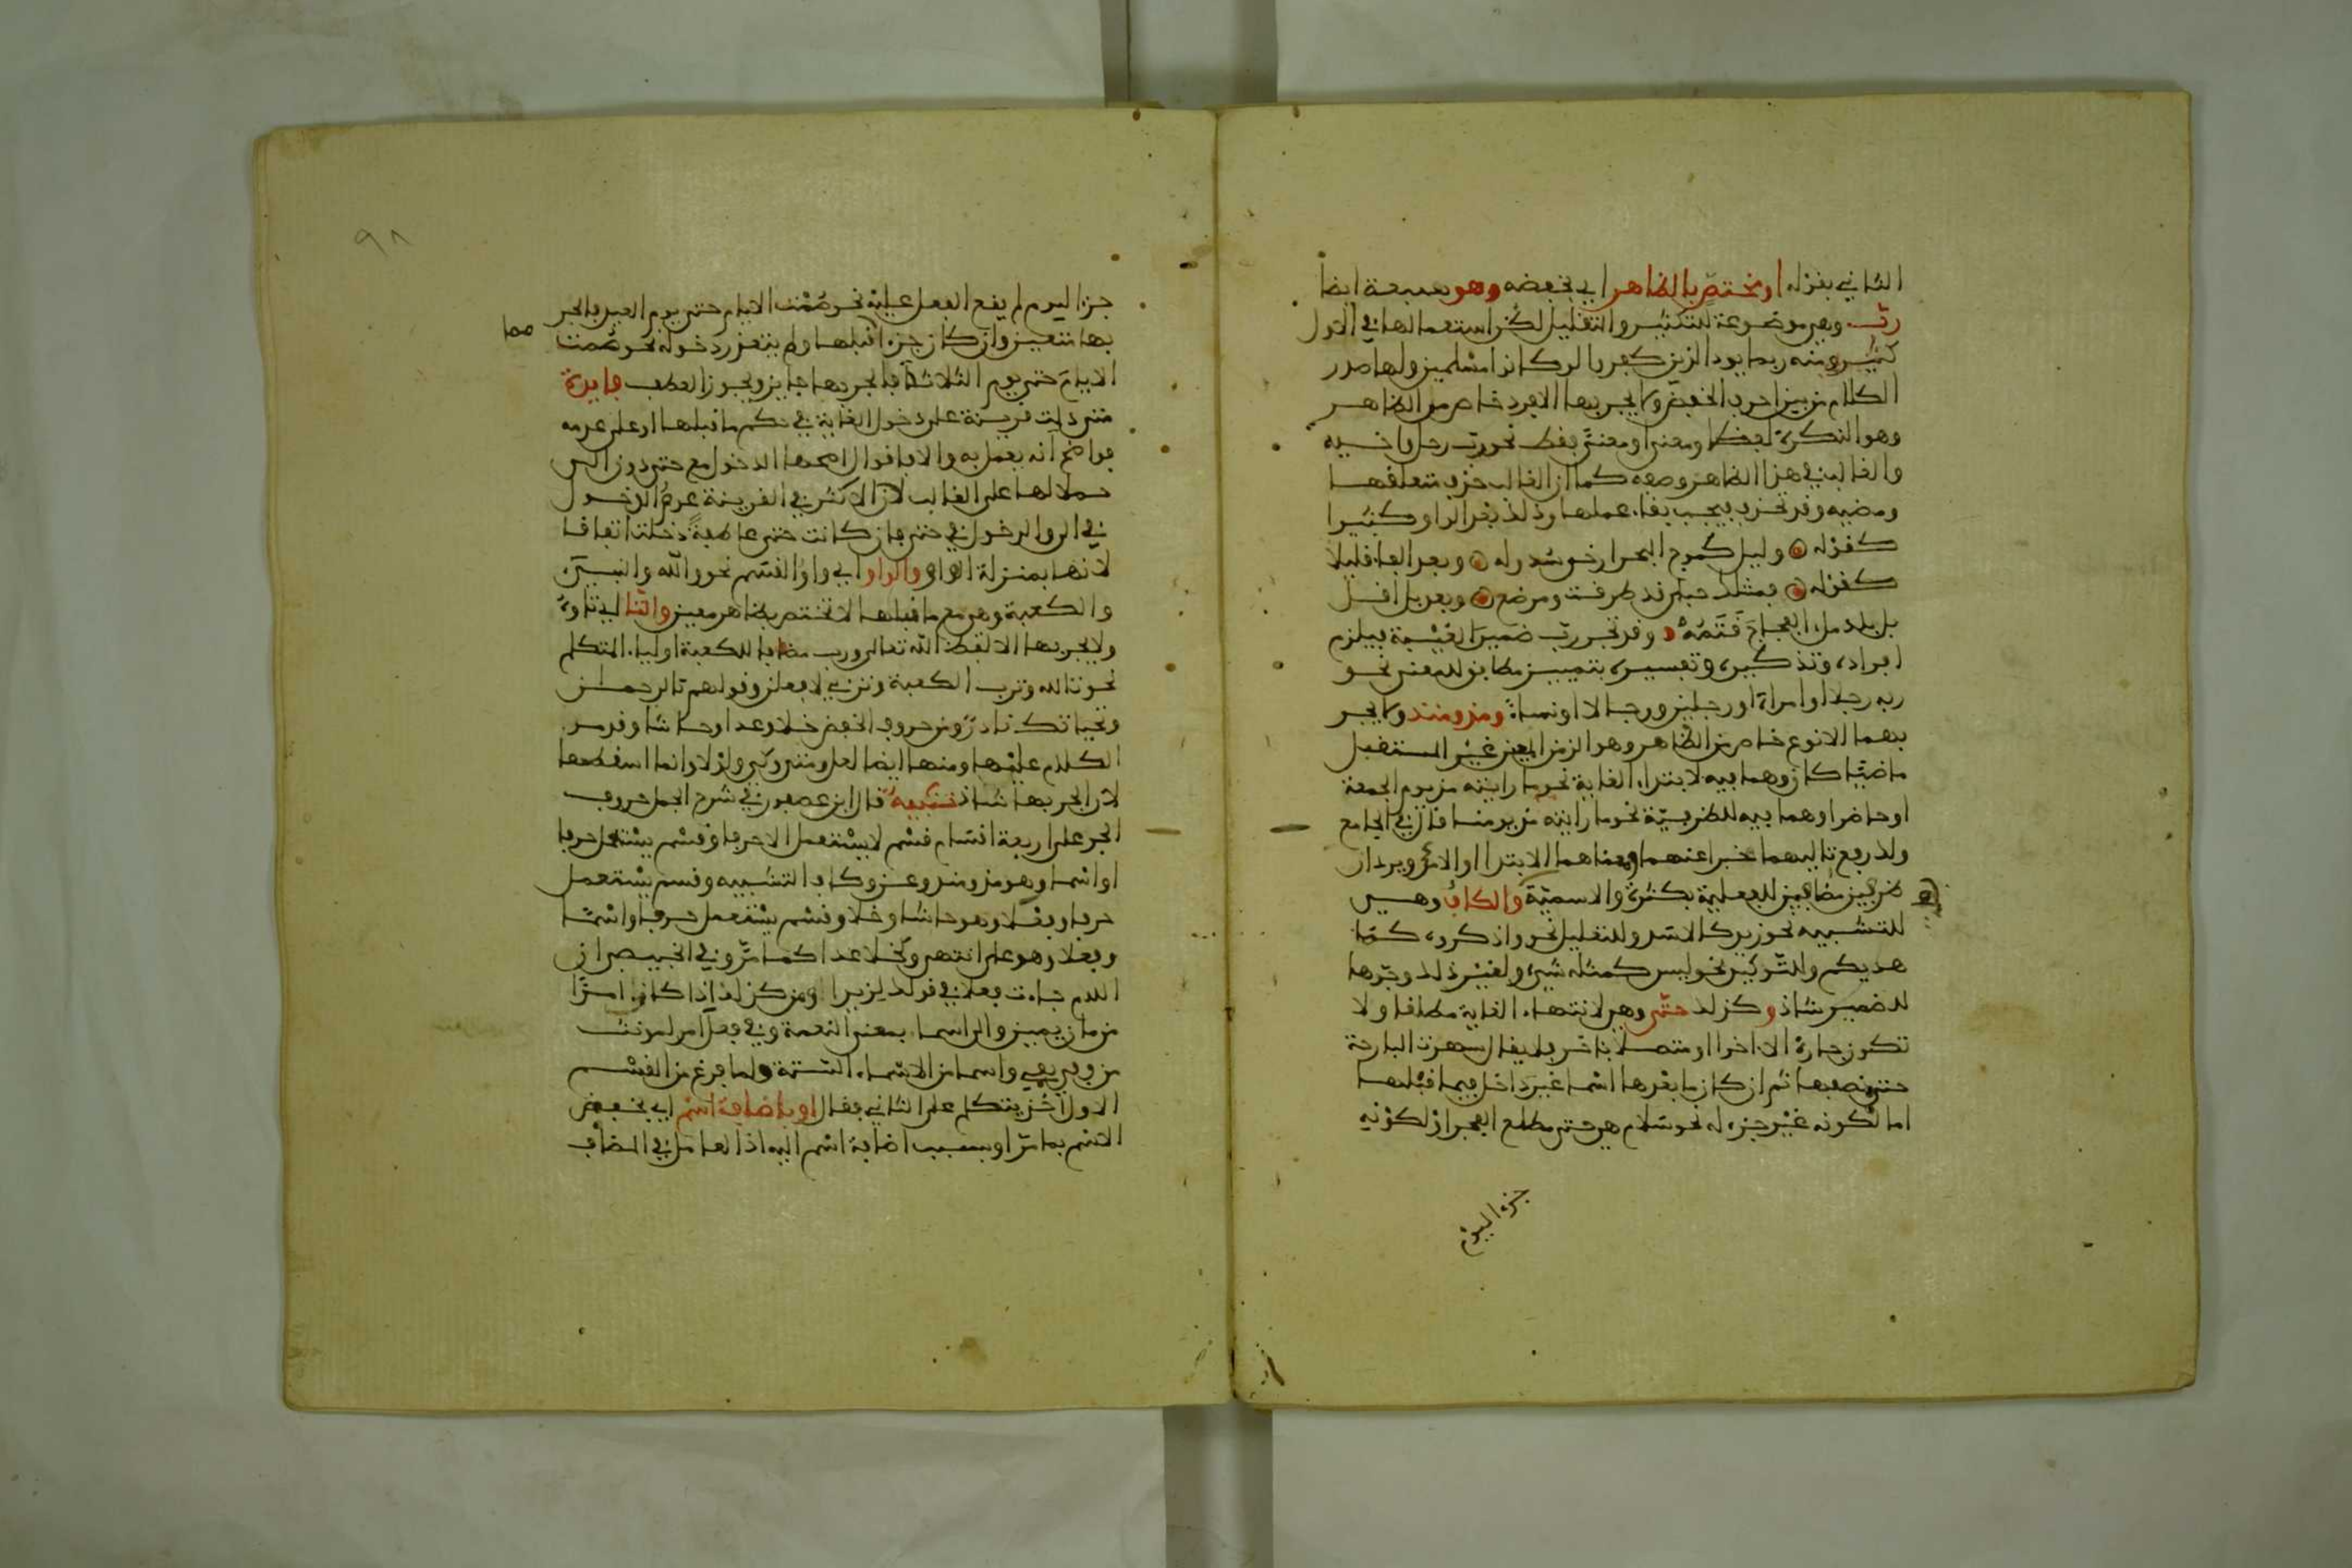 الثاني بقوله او مختص بالظاهر اي بخفضه وهو سبعة ايضا
رب وهي موضوعة للتكثير والتقليل لكن استعمالها في الاول
كثير ومنه ربما يود الذين كفروا لو كانوا مسلمين ولها صدر
الكلام من بين احرف الخفض ولا يجر بها الا فرد خاص من الظاهر
وهو النكرة لفظا ومعنى او معنى فقط نحو رب رجل واخيه
والغالب في هذا الظاهر وصفه كما ان الغالب حذف متعلقها
ومضيه وقد تحذف فيجب بقاء عملها وذلك بعد الواو كثيرا
كقوله وليل كموج البحر ارخى سدوله وبعد الفاء قليلا
كقوله فمثلك حبلى قد طرقت ومرضع وبعد بل اقل
بل بلد ملء الفجاج قتمه وقد تجر رب ضمير الغيبة فيلزم
افراده وتذكيره وتفسيره بتمييز مطابق للمعنى نحو
ربه رجلا او امراة او رجلين ورجالا او نساء ومذ ومنذ ولا يجر
بهما الا نوع خاص من الظاهر وهو الزمن المعين غير المستقبل
ماضيا كان وهما فيه لابتداء الغاية نحو ما رايته مذ يوم الجمعة
او حاضرا وهما فيه للظرفية نحو ما رايته مذ يومنا فان في الجامع
ولك رفع تاليهما خبرا عنهما ومعناهما الابتدا او الامد ويردان
ظرفين مضافين للفعلية بكثرة والاسمية والكاف وهي
للتشبيه نحو زيد كالاسد وللتعليل نحو واذكروه كما
هديكم وللتوكيد نحو ليس كمثله شيء ولغير ذلك وجرها
للضمير شاذ وكذلك حتى وهي لانتهاء الغاية مطلقا ولا
تكون جارة الا اخرا او متصلا باخر فلا يقال سهرت البارحة
حتى نصفها ثم ان كان ما بعدها اسما غير داخل فيما قبلها
اما لكونه غير جزء له نحو سلام هي حتى مطلع الفجر او لكونه
جزء اليوم
٩٨
جزء اليوم لم يقع الفعل عليه نحو صمت الايام حتى يوم العيد فالجر
بها متعين وان كان جزء ا قبلها ولم يتعذر دخوله نحو صمت
مما
الايام حتى يوم الثلاثاء فالجر بها جايز ويجوز العطف فايدة
متى دلت قرينة على دخول الغاية في حكم ما قبلها او على عدمه
فواضح انه يعمل به والا فاقوال اصحها الدخول مع حتى دون الى
حملا لها على الغالب لان الاكثر في القرينة عدم الدخول
في الى والدخول في حتى فان كانت حتى عاطفة دخلت اتفاقا
لانها بمنزلة الواو والواو اي واو القسم نحو والله والنبيين
والكعبة وهي مع ما قبلها لا تختص بظاهر معين والتا اي تاوه
ولا يجر بها الا لفظ الله تعالى ورب مضافا للكعبة او لياء المتكلم
نحو تالله وترب الكعبة وتربي لافعلن وقولهم تالرحمان
وتحياتك نادر ومن حروف الخفض خلا وعدا وحاشا وقد مر
الكلام عليها ومنها ايضا لعل ومتى وكي ولولا وانما اسقطها
لان الجر بها شاذ تنبيه قال ابن عصفور في شرح الجمل حروف
الجر على اربعة اقسام قسم لا يستعمل الا حرفا وقسم يستعمل حرفا
او اسما وهو مذ ومنذ وعن وكاف التشبيه وقسم يستعمل
حرفا وفعلا وهو حاشا وخلا وقسم يستعمل حرفا واسما
وفعلا وهو على انتهى وكخلا عدا كما مر وفي الخبيصي ان
اللام جاءت فعلا في قولك لزيدا ومن كذلك اذا كان امرا
من مان يمين والى اسما بمعنى النعمة وفي فعل امر لمونث
من وفى يفي واسما من الاسماء الستة ولما فرغ من القسم
الاول اخذ يتكلم على الثاني فقال او باضافة اسم اي يخفض
الاسم بما مر او بسبب اضافة اسم اليه اذ العامل في المضاف